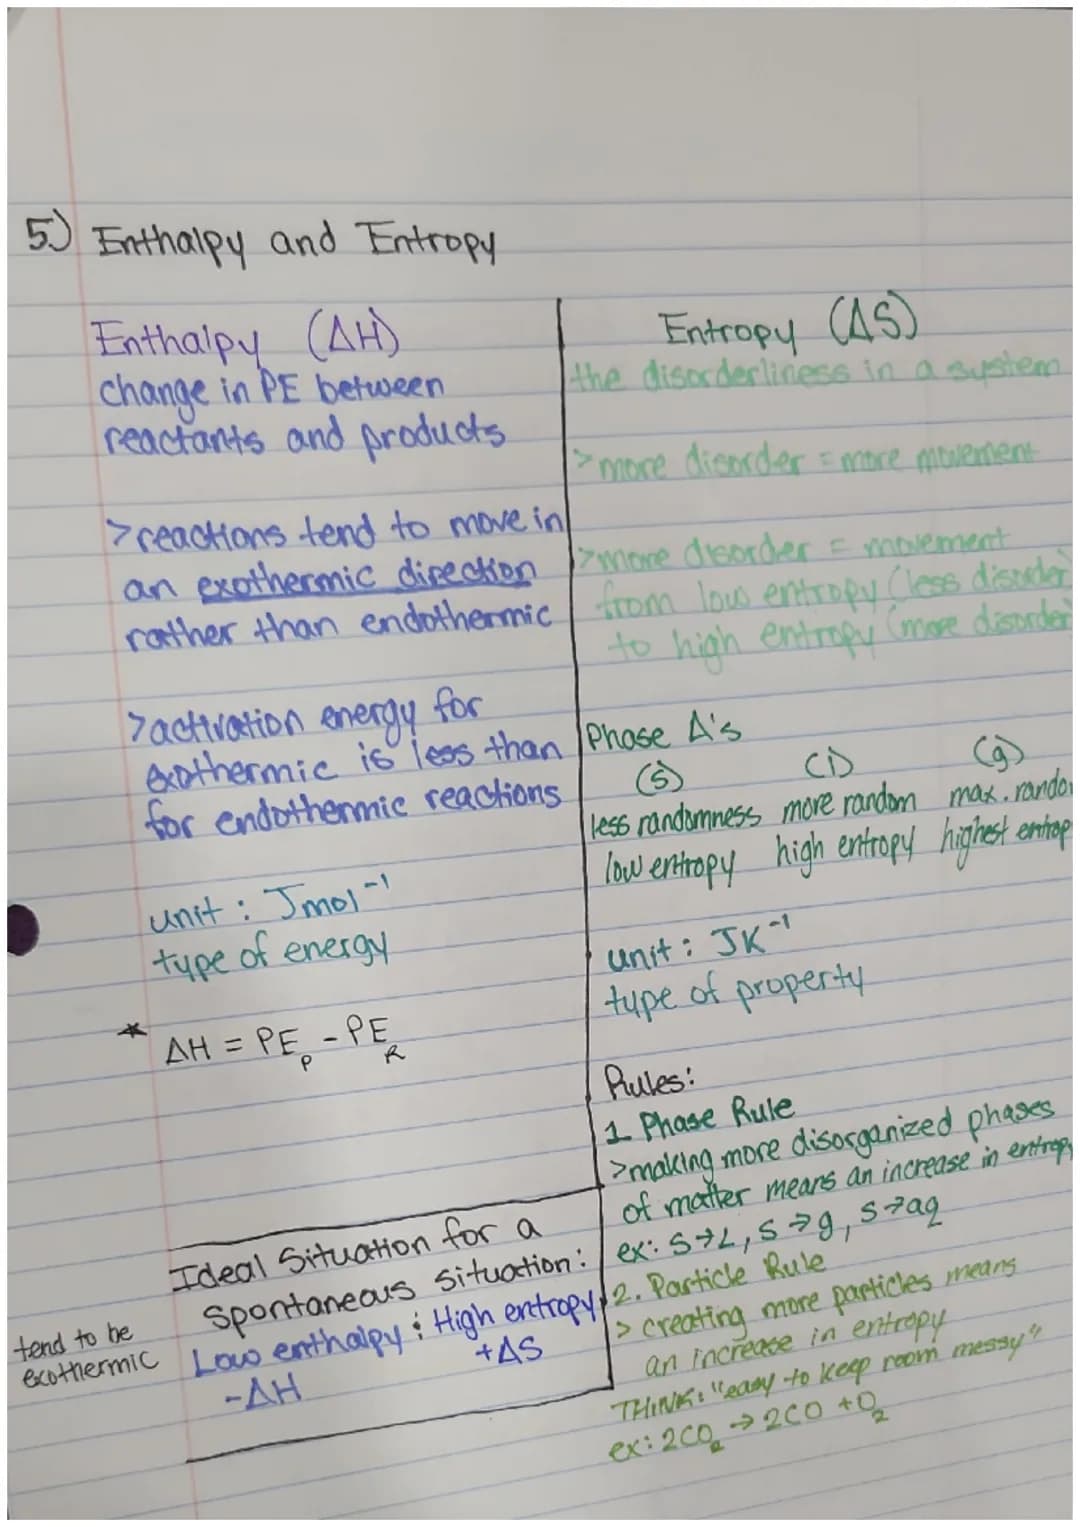 5.) Enthalpy and Entropy
Enthalpy (ΔH)
change in PE between
reactants and products
>reactions tend to move in
an exothermic direction
rather than endothermic
>activation energy for
exothermic is less than
for endothermic reactions
unit: Jmol⁻¹
type of energy
* ΔH = PEₚ - PE_R
Ideal Situation for a
Spontaneous situation:
Low enthalpy ; High entropy
-ΔH +ΔS
tend to be
exothermic
Entropy (ΔS)
the disorderliness in a system
>more disorder = more movement
>more disorder = movement
from low entropy (less disorder)
to high entropy (more disorder)
Phase Δ's
(s) (l) (g)
less randomness more random max. rando
low entropy high entropy highest entrop
unit: JK⁻¹
type of property
Rules:
1 Phase Rule
>making more disorganized phases
of matter means an increase in entropy
ex: S→L, S→g, S→aq
2. Particle Rule
> creating more particles means
an increase in entropy
THINK: "easy to keep room messy"
ex: 2CO₂ → 2CO + O₂